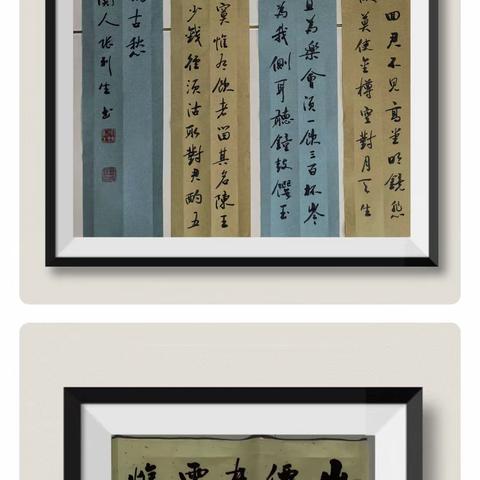 回君不見高堂明鏡悲
莫使金樽空對月天生
且為樂會須一飲三百杯岑
為我側耳聽鐘鼓饌玉
寞惟有飲者留其名陳王
少錢徑須沽取對君酌五
古愁
人張利生書